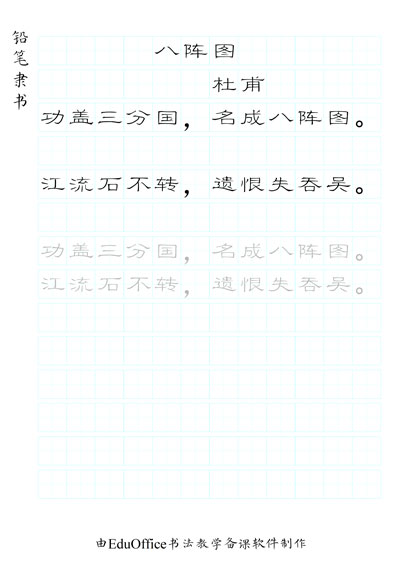 铅笔隶书
八阵图
杜甫
功盖三分国，名成八阵图。
江流石不转，遗恨失吞吴。
功盖三分国，名成八阵图。
江流石不转，遗恨失吞吴。
由EduOffice书法教学备课软件制作